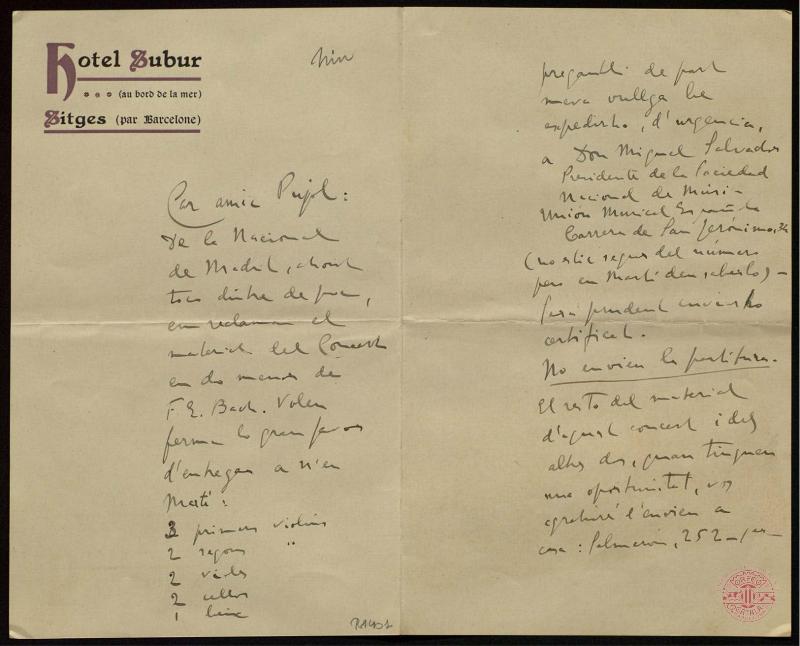 Hotel Subur
(au bord de la mer)
Sitges (par Barcelone)
Nin
Car amic Pujol:
De la Nacional
de Madrid, ahont
toco dintre de poc,
em reclaman el
material del Concert
en do menor de
F. E. Bach. Volen
ferme lo gran favor
d'entregar a n'en
Martí:
3 primers violins
2 segons "
2 violes
2 cellos
1 baix
pregantli de part
meva vullga
expedirho, d'urgencia,
a Don Miguel Salvador
Presidente de la Sociedad
Nacional de Músi-
Unión Musical Española
Carrera de San Jerónimo, 34
(no estic segur del número
pero en Martí deu saberlo) —
Será prudent enviarho
certificat.
No envien la partitura.
El resto del material
d'aquest concert i dels
altres dos, quan tinguen
una oportunitat, vos
agrahiré l'envien a
casa: Salmerón, 252
ORFEÓ
CATALÀ